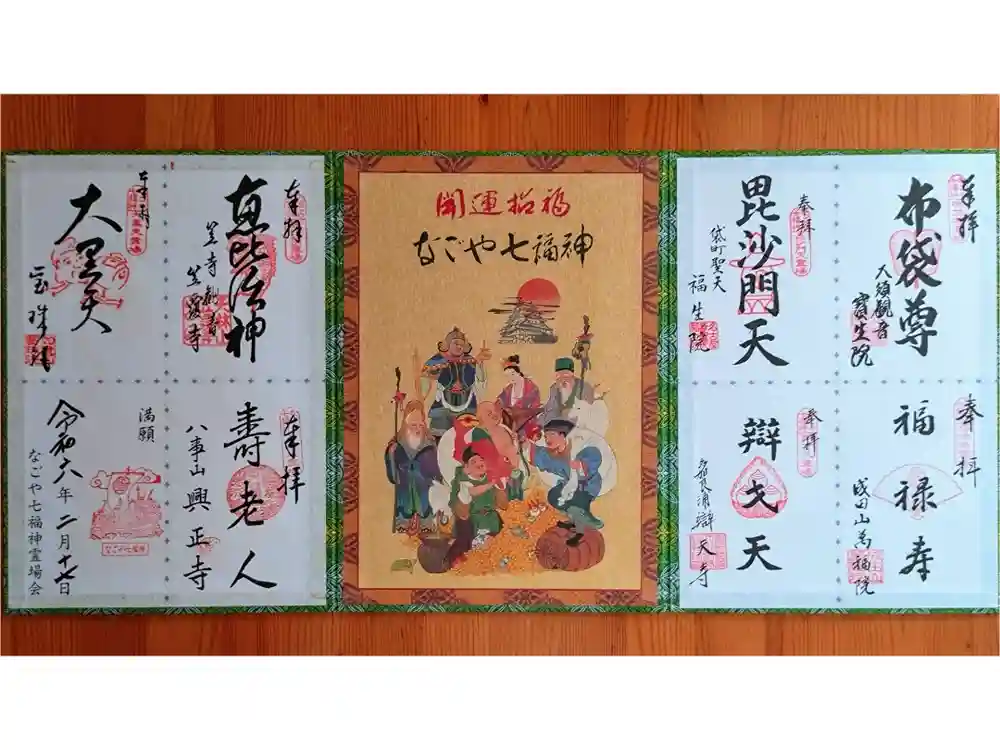 奉拝
布袋尊
大須観音
寳生院
奉拝
毘沙門天
袋町聖天
福生院
奉拝
福禄寿
成田山萬福院
奉拝
辯才天
辯天寺
開運招福
なごや七福神
奉拝
恵比須神
笠寺観音
笠覆寺
奉拝
大黒天
宝珠院
奉拝
寿老人
八事山興正寺
満願
令和六年二月十七日
なごや七福神霊場会
なごや七福神